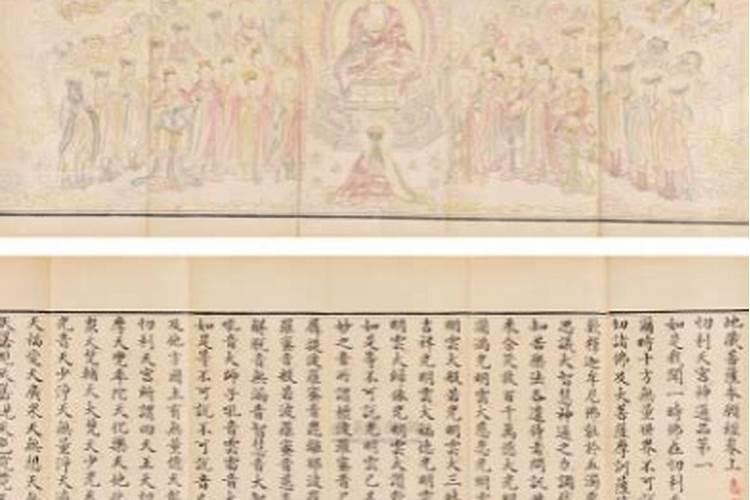 地藏菩薩本願經卷上
忉利天宮神通品第一
如是我聞一時佛在忉利
爾時十方無量世界不可
切諸佛及大菩薩摩訶薩
歎釋迦牟尼佛能於五濁
思議大智慧神通之力調
知苦樂法各遣侍者問訊
來含笑放百千萬億大光
圓滿光明雲大慈悲光明
明雲大般若光明雲大三昧
吉祥光明雲大福德光明
明雲大歸依光明雲大讚
如是等不可說光明雲已
妙之音所謂檀波羅蜜音
羼提波羅蜜音毗離耶波
羅蜜音般若波羅蜜音慈
解脫音無漏音智慧音大智
吼音大師子吼音雲雷音大
如是等不可說不可說音已
及他方國土有無量億天龍
忉利天宮所謂四天王天
摩天兜率陀天化樂天他化
眾天梵輔天大梵天少光天
光音天少淨天無量淨天
天福愛天廣果天無想天